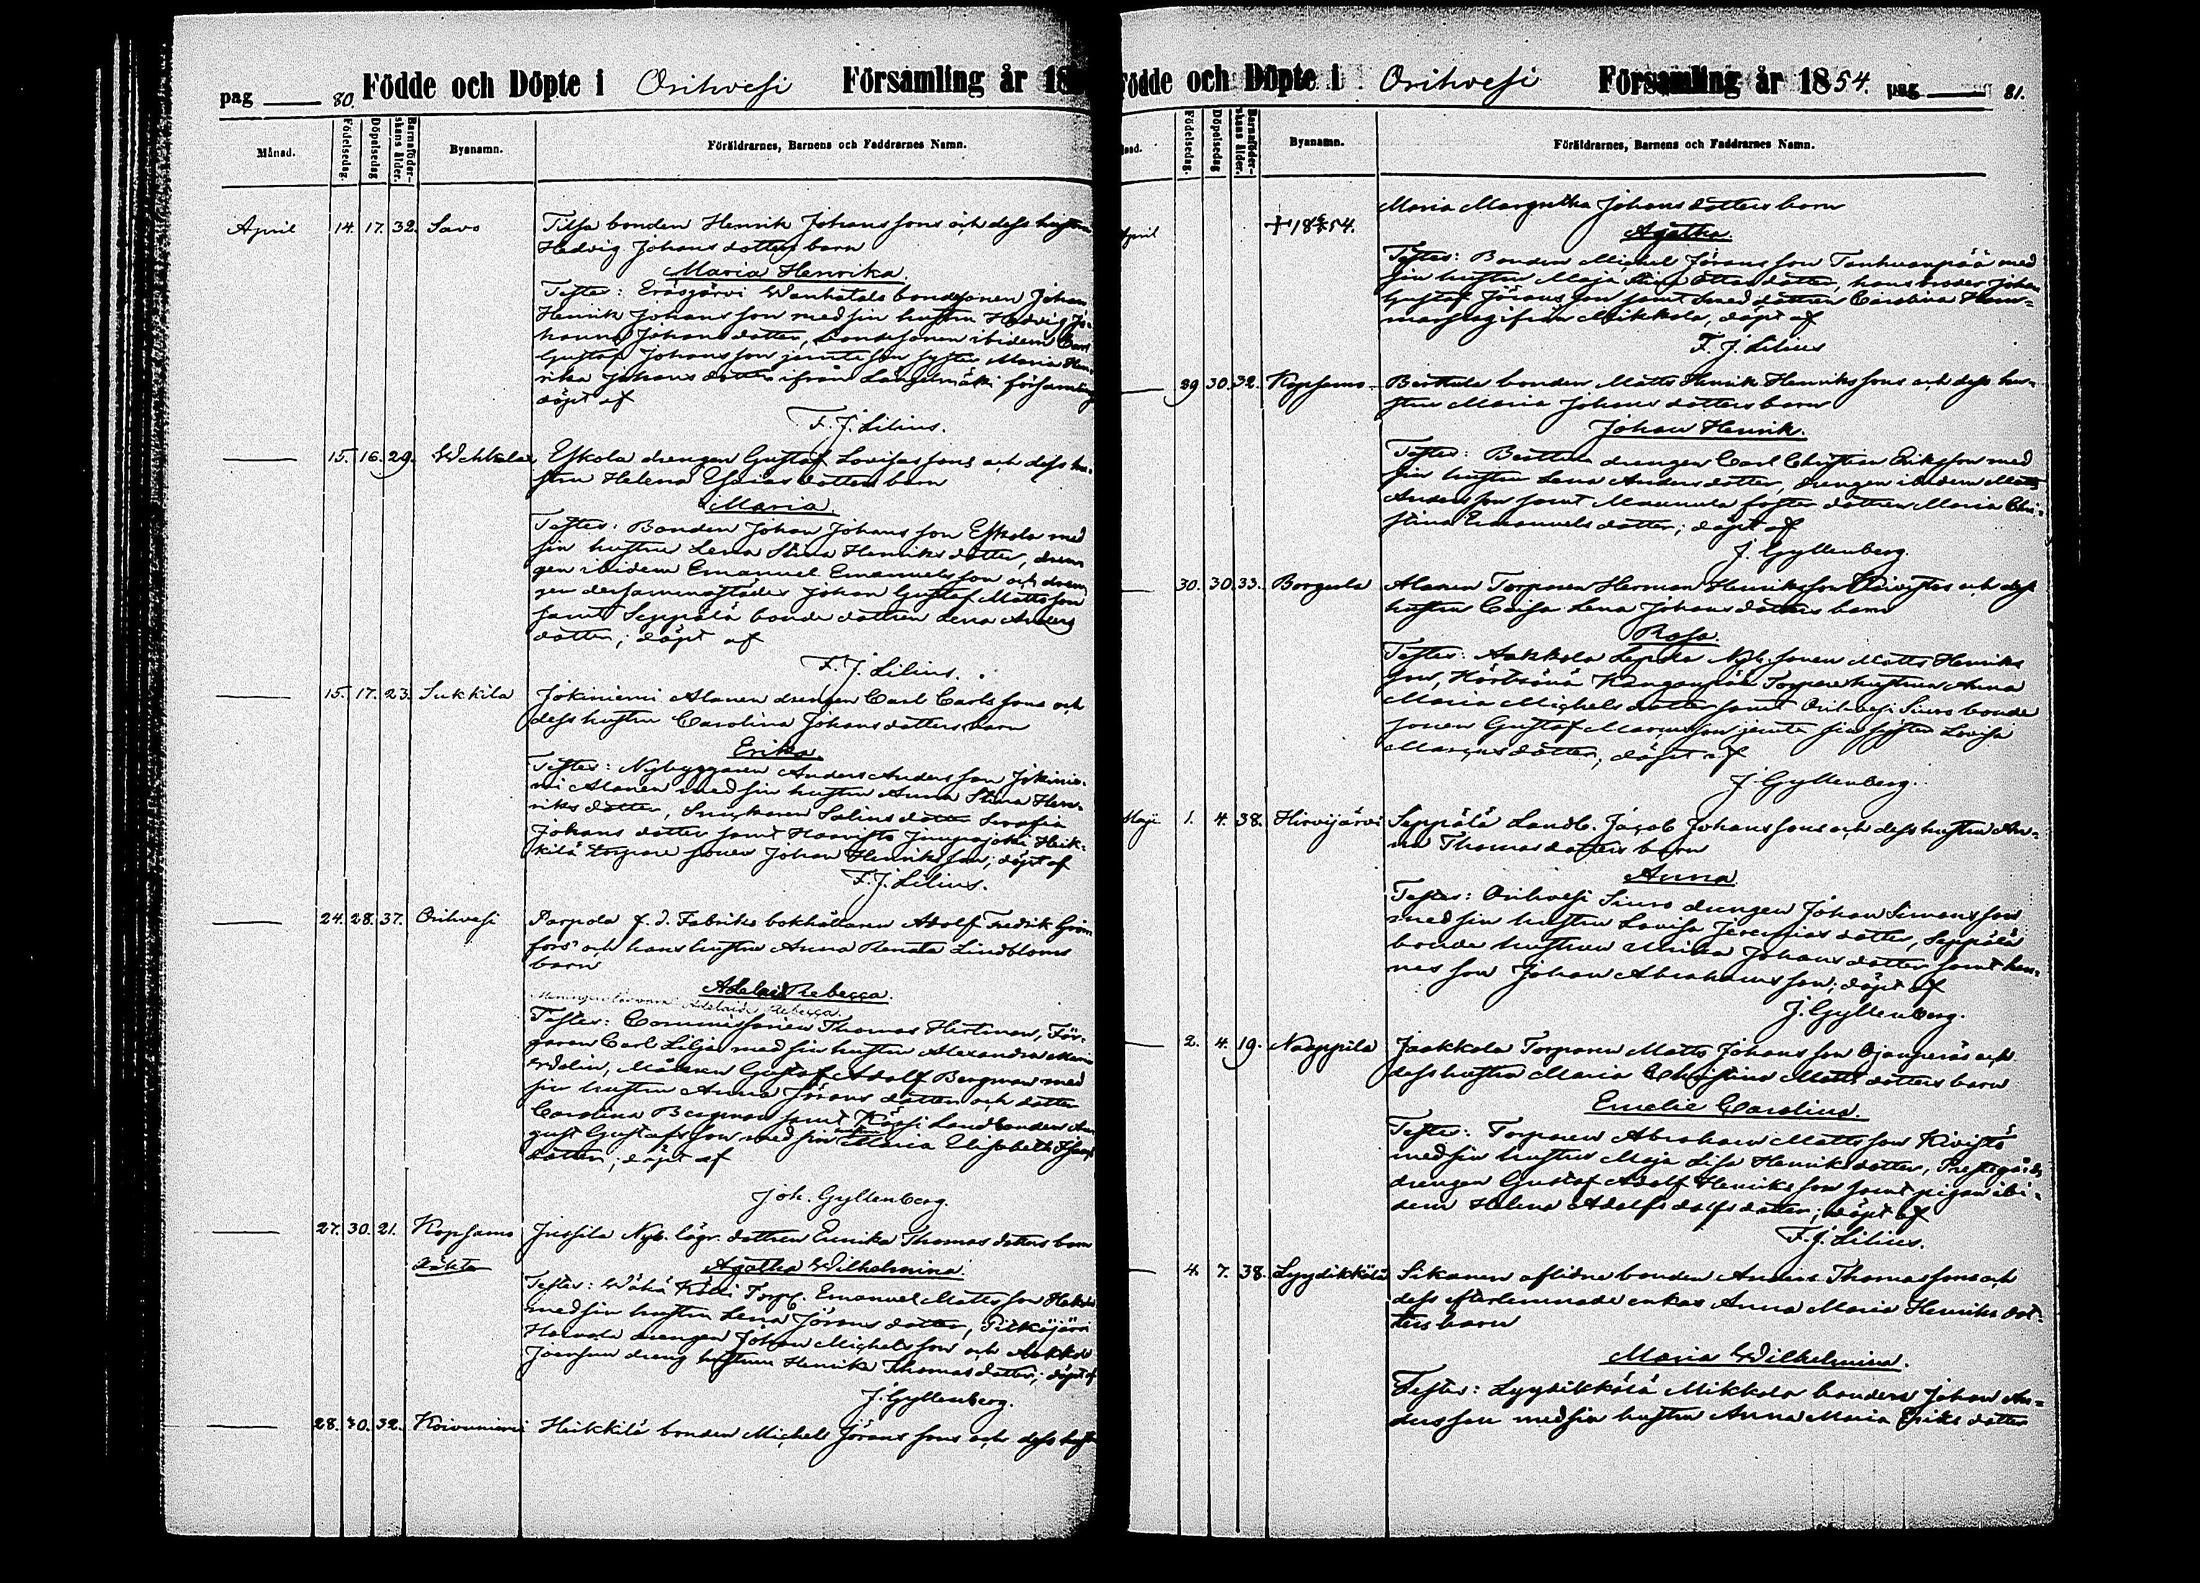 pag 80. Födde och Döpte i Orihvesi Församling år 18
Månad. Födelsedag. Döpelsedag Barnaföderskans ålder. Bysnamn. Föräldrarnes, Barnens och Faddrarnes Namn.
April 14. 17. 32. Savo Tilsa bonden Henrik Johanssons och dess hustru
Hedvig Johansdotters barn
Maria Henrika.
Testes: Eräsjärvi Wanhatalo bondesonen Johan
Henrik Johansson med sin hustru Hedvig Jo-
hanna Johansdotter, bondesonen ibidem Carl
Gustaf Johansson jemte sin syster Maria Hen-
rika Johansdotter ifrån Längelmäki församling
döpt af
F. J. Lilius.
15. 16. 29. Wehkala Eskola drengen Gustaf Lovisassons och dess hu-
stru Helena Esaiasdotters barn
Maria.
Testes: Bonden Johan Johansson Eskola med
sin hustru Lena Stina Henriksdotter, dren-
gen ibidem Emanuel Emanuelsson och dren-
gen dersammastädes Johan Gustaf Mattsson
samt Seppälä bonde dottren Lena Anders
dotter; döpt af
F. J. Lilius.
15. 17. 23. Sukkila Jokiniemi Alanen drengen Carl Carlssons och
dess hustru Carolina Johansdotters barn
Erika.
Testes: Nybyggaren Anders Andersson Jokinie-
mi Alanen med sin hustru Anna Stina Hen-
riksdotter, Snickaren Salins dotter Serafia
Johansdotter samt Haavisto Jumpajoki Heik-
kilä torpare sonen Johan Henriksson; döpt af
F. J. Lilius.
24. 28. 37. Orihvesi Parpola f. d. Fabriks bokhållaren Adolf Fredrik Grön
fors' och hans hustru Anna Renata Lindbloms
barn
Adelaid Rebecca.
Adelaide Rebecca.
Testes: Commissarien Thomas Hertman, Fär-
garen Carl Lilja med sin hustru Alexandra
Wdelin, Målaren Gustaf Adolf Bergman med
sin hustru Anna Jöransdotter och dotter
Carolina Bergman samt Landbonden Au
gust Gustafsson med sin hustru Maria Elisabeth Isaks
dotter; döpt af
Joh. Gyllenberg.
27. 30. 21. Kopsamo Jussila Nyb. lägr. dottren Eunika Thomasdotters barn
oäkta Agatha Wilhelmina.
Testes: Wähä Kölli Torp. Emanuel Mattsson
med sin hustru Lena Jöransdotter, Pitkäjärvi
Haavala drengen Johan Michelsson och Aakkola
Joensuu dreng hustrun Henrika Thomasdotter; döpt af
J. Gyllenberg.
28. 30. 32. Koivuniemi Heikkilä bonden Michels Jöranssons och dess hustru
Födde och Döpte i Orihvesi Församling år 1854. pag 81.
Födelsedag. Döpelsedag Barnaföderskans ålder. Bysnamn. Föräldrarnes, Barnens och Faddrarnes Namn.
Maria Margretha Johansdotters barn
April Agatha.
Testes: Bonden Michel Jöransson Tanhuanpää med
sin hustru Maja Stina Ottosdotter, hans broder Johan
Gustaf Jöransson samt smed dottren Carolina Ham-
mar ifrån Mikkola, döpt af
F. J. Lilius
29 30. 32. Kopsamo Berttula bonden Matts Henrik Henrikssons och dess hu-
stru Maria Johansdotters barn
Johan Henrik.
Testes: Berttula drengen Carl Christian Eriksson med
sin hustru Lena Andersdotter, drengen ibidem Matts
Andersson samt Maunula foster dottren Maria Chri-
stina Emanuelsdotter; döpt af
J. Gyllenberg.
30. 30. 33. Borgula Alanen Torparen Herman Henriksson Koivistos och dess
hustru Caisa Lena Johansdotters barn
Rosa.
Testes: Aakkola Lepola Nyb. sonen Matts Henriks
son, Hörtsänä Kangaspää Torpare hustrun Anna
Maria Michelsdotter samt Orihvesi Siuro bonde
sonen Gustaf Marcusson jemte sin syster Lovisa
Marcusdotter; döpt af
J. Gyllenberg.
Maji 1. 4. 38. Hirvijärvi Seppälä Landb. Jacob Johanssons och dess hustru An-
na Thomasdotters barn
Anna
Testes: Orihvesi Siuro drengen Johan Simonsson
med sin hustru Lovisa Jeremiasdotter, Seppälä
bonde hustrun Ulrika Johansdotter samt hen-
nes son Johan Abrahamsson; döpt af
J. Gyllenberg.
2. 4. 19. Naappila Jaakkola Torparen Matts Johansson Ojanperäs och
dess hustru Maria Christina Mattsdotters barn
Emelie Carolina.
Testes: Torparen Abraham Mattsson Kivistö
med sin hustru Maja Lisa Henriksdotter, Prestgårds
drengen Gustaf Adolf Henriksson samt pigan ibi-
dem Helena Adolfsdotter; döpt af
F. J. Lilius.
4. 7. 38. Lyydikkälä Sikanen aflidne bonden Anders Thomassons och
dess efterlemnade enkas Anna Maria Henriks dot-
ters barn
Maria Wilhelmina.
Testes: Lyydikkälä Mikkola bonden Johan An-
dersson med sin hustru Anna Maria Eriksdotter